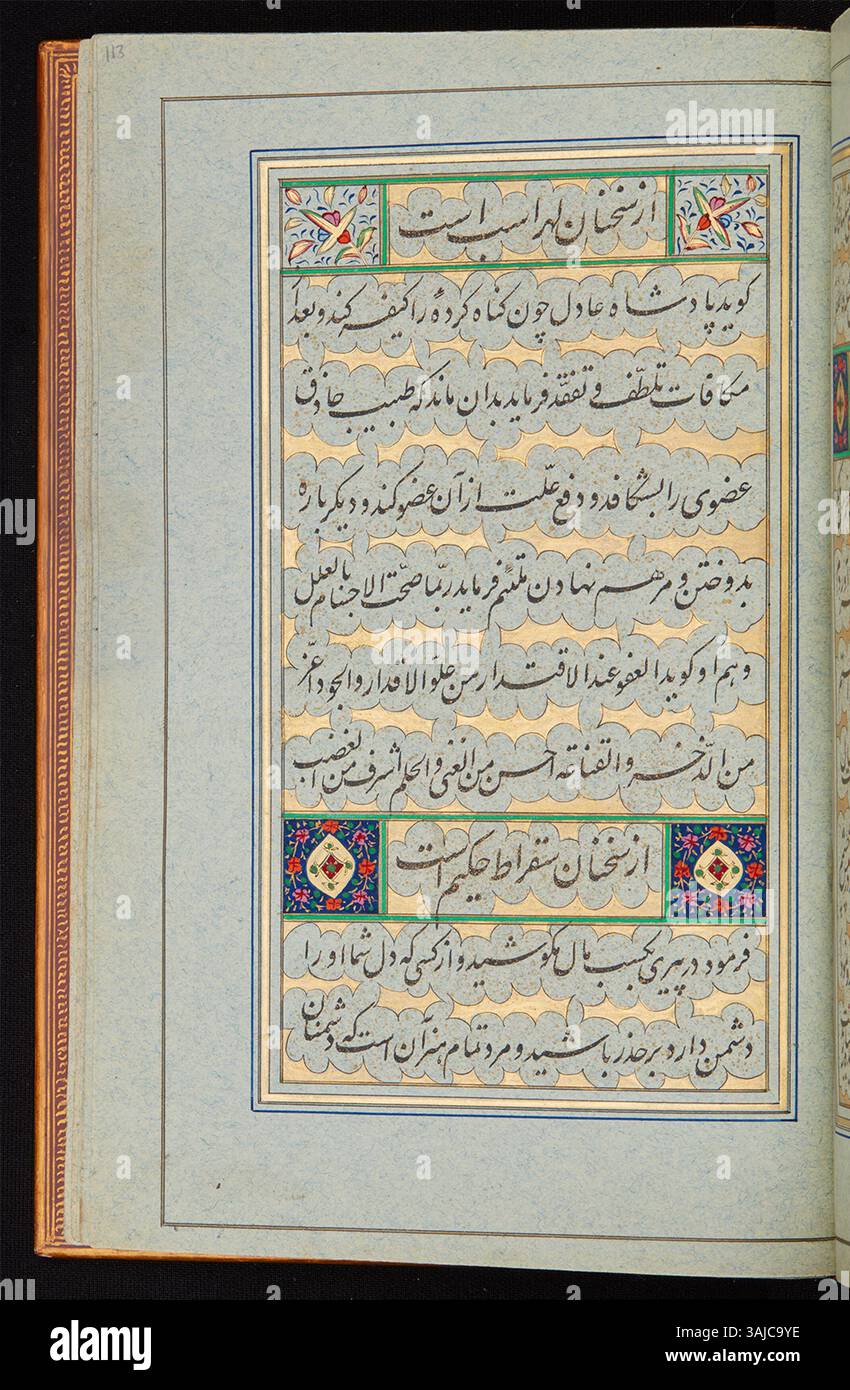 113
از سخنان لهراسب است
کوید پادشاه عادل چون کناه کردهٔ را کیفر کند و بعد از
مکافات تلطّف و تفقّد فرماید بدان ماند که طبیب حاذق
عضوی را بشکافد و دفع علّت از آن عضو کند و دیکر باره
بدوختن و مرهم نهادن ملتئم فرماید ربّما صحّت الاجسام بالعلل
و هم او کوید العفو عند الاقتدار من علو الاقدار و الجود اعزّ
من الذّخر و القناعه احسن من الغنی و الحلم اشرف من الغضب
از سخنان سقراط حکیم است
فرمود در پیری بکسب مال مکوشید و از کسی که دل شما او را
دشمن دارد بر حذر باشید و مرد تمام هنر آن است که دشمنان
alamy
a
Image ID: 3AJC9YE
www.alamy.com